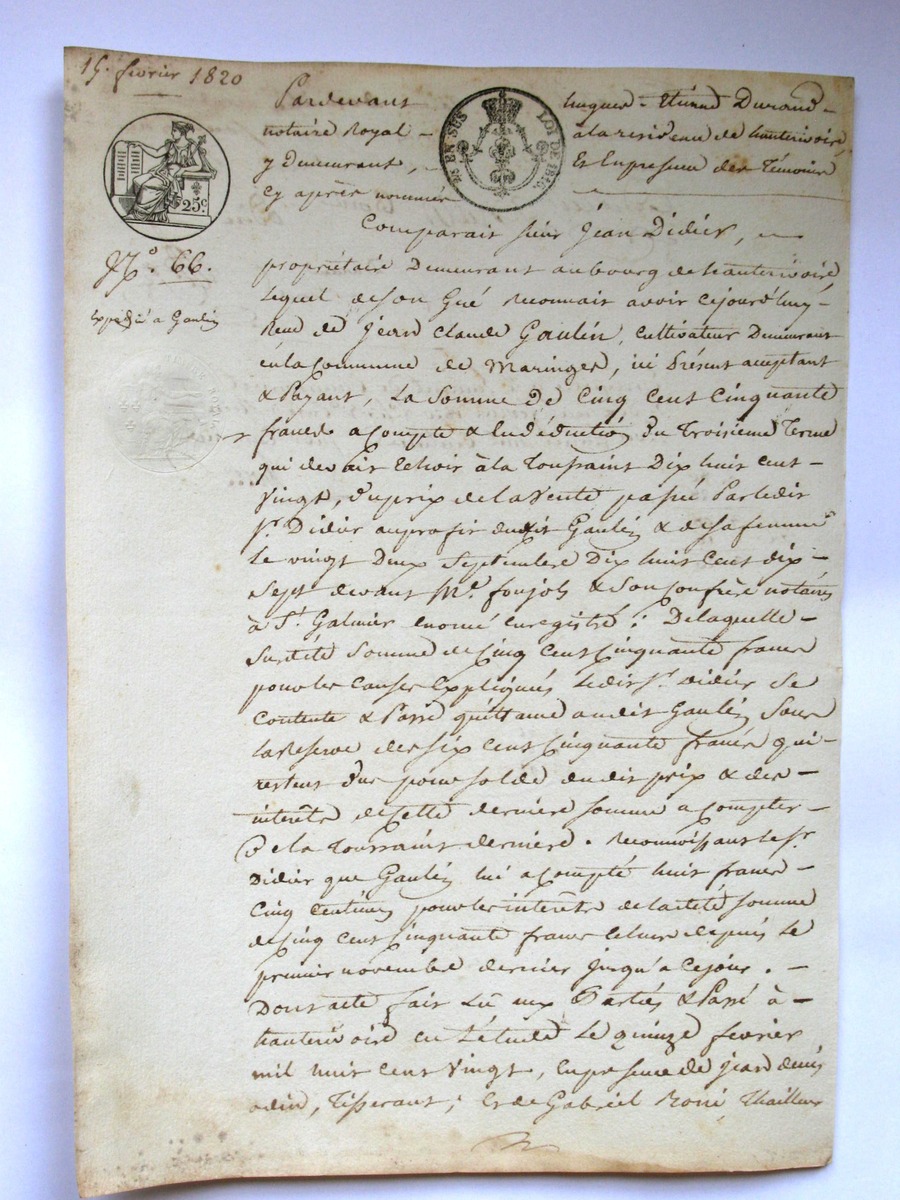 15. fevrier 1820
Pardevant hugues - Etienne Durand -
notaire Royal - à la residence de hauterivoire,
y Demeurant, - Et En presence des Temoins
Cy après nommés
EN SUS LOI DE
25c
No. 66.
Expedié a Gaulin
Comparait sieur Jean Didier, -
propriétaire Demeurant au bourg de hauterivoire
lequel de son Gré reconnait avoir cejourd'huy
Reçu de Jean Claude Gaulin, cultivateur Demeurant
en la Commune de Maringes, ici Présent acceptant
& Payant, La Somme De Cinq Cent Cinquante
francs a Compte & En déduction Du Troisieme Terme
qui devait Echoir à la Toussaint Dix huit cent -
Vingt, Du prix de la Vente passée Par ledit
Sr. Didier au profit dudit Gaulin & de sa femme
Le vingt Deux Septembre Dix huit Cent dix -
Sept devant Me. foujols & son Confrère notaires
à St. Galmier Enregistré : De laquelle -
Susdite Somme de Cinq Cent Cinquante francs
pour les Causes Expliquées Ledit Sr. Didier Se
Contente & Passe quittance audit Gaulin Sous
la Reserve des six Cent Cinquante francs qui -
restent Dus pour solde dudit prix & des -
interêts de Cette derniere somme a Compter -
De la Toussaint derniere. Reconnoissant le Sr.
Didier que Gaulin lui a Compté huit francs -
Cinq Centimes pour les interêts de la dite somme
de Cinq Cent Cinquante francs Echue depuis le
premier novembre dernier Jusqu'a Ce jour. -
Dont acte fait Lû aux Parties & Passé à -
hauterivoire En L'étude Le quinze fevrier
mil huit Cent Vingt, En presence de Jean denis
odin, Tisserant; Et de Gabriel Thailleur